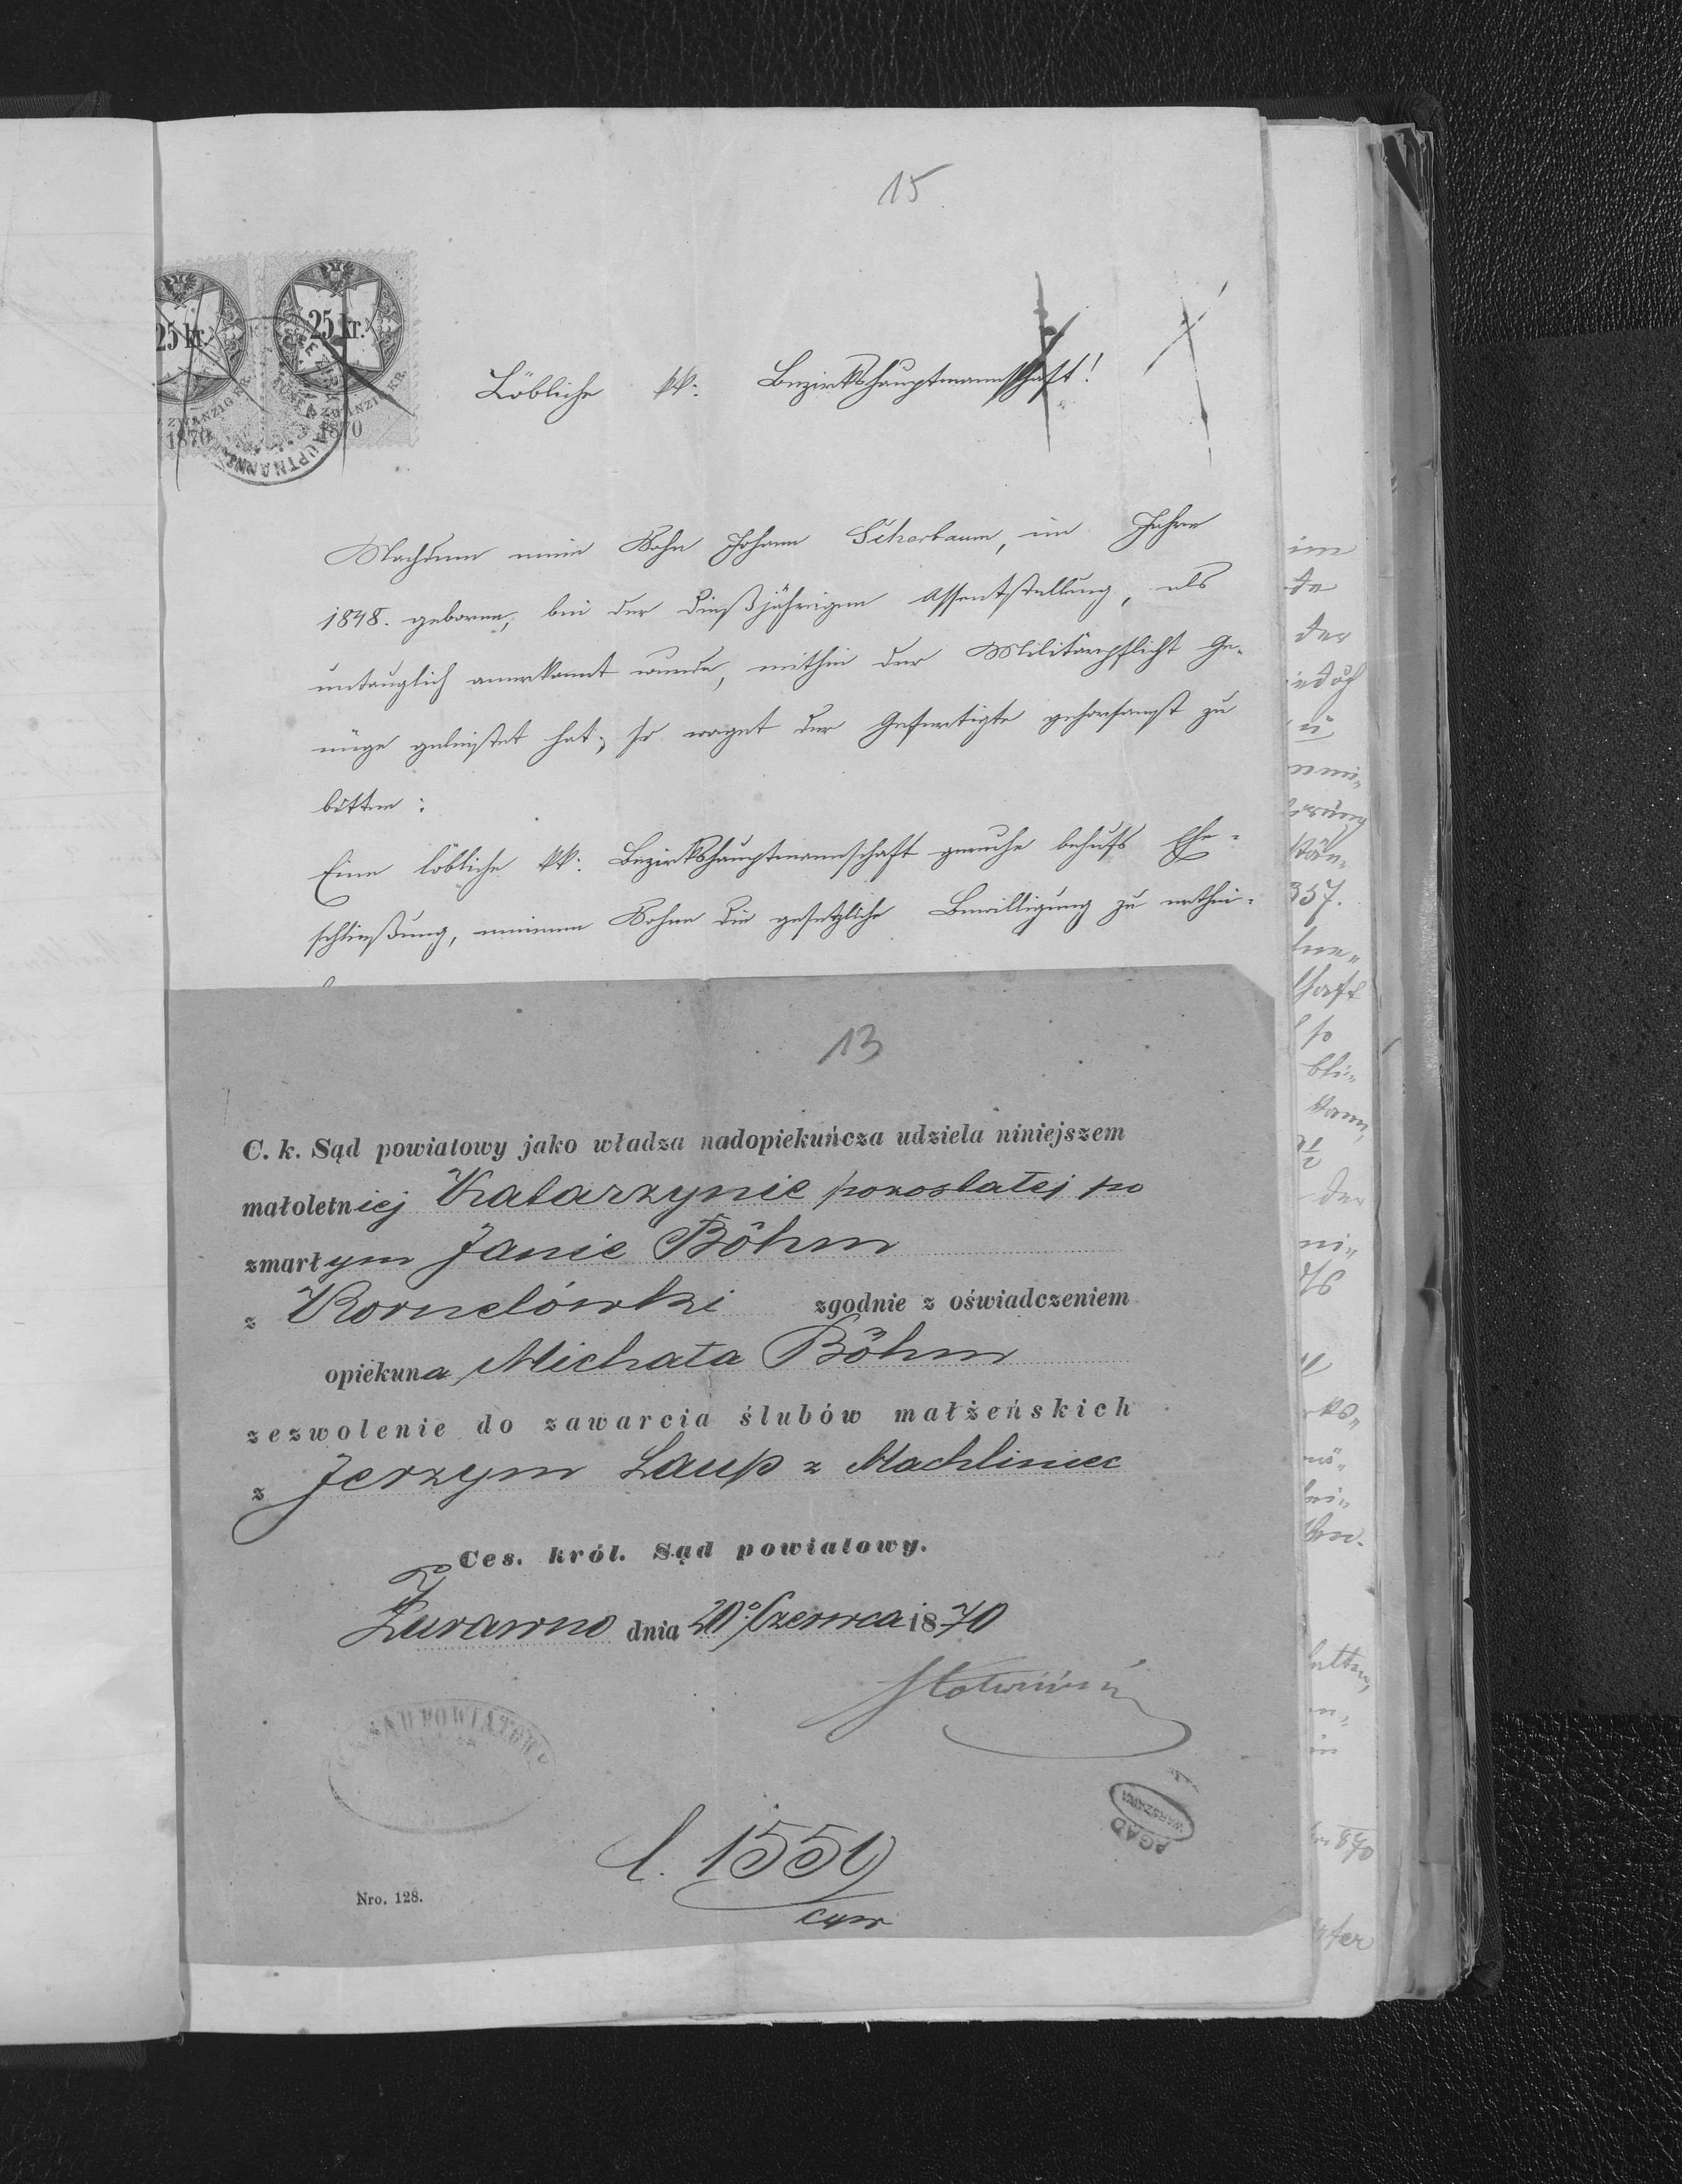 15
25 kr.
25 kr.
ZWANZIG KR.
1870
1870
Löbliche kk: Bezirkshauptmannschaft!
Nachdem mein Sohn Johann Scherbaum, im Jahre
1848. geboren, bei der dießjährigen Assentstellung, als
untauglich anerkannt wurde, mithin der Militärpflicht Ge-
nüge geleistet hat; so waget der Gefertigte gehorsamst zu
bitten:
Eine löbliche kk: Bezirkshauptmannschaft geruhe behufs Ehe-
schließung, meinem Sohne die gesetzliche Bewilligung zu erthei-
13
C. k. Sąd powiatowy jako władza nadopiekuńcza udziela niniejszem
małoletniej Katarzynie pozostałej po
zmarłym Janie Böhm
z Kornelówki zgodnie z oświadczeniem
opiekuna Michała Böhm
zezwolenie do zawarcia ślubów małżeńskich
z Jerzym Laup z Machliniec
Ces. król. Sąd powiatowy.
Żurawno dnia 20º Czerwca 1870
SĄD POWIATOWY
AGAD
WARSZAWA
l. 1559
cyw
Nro. 128.
im
der
jedoch
357.
so
der